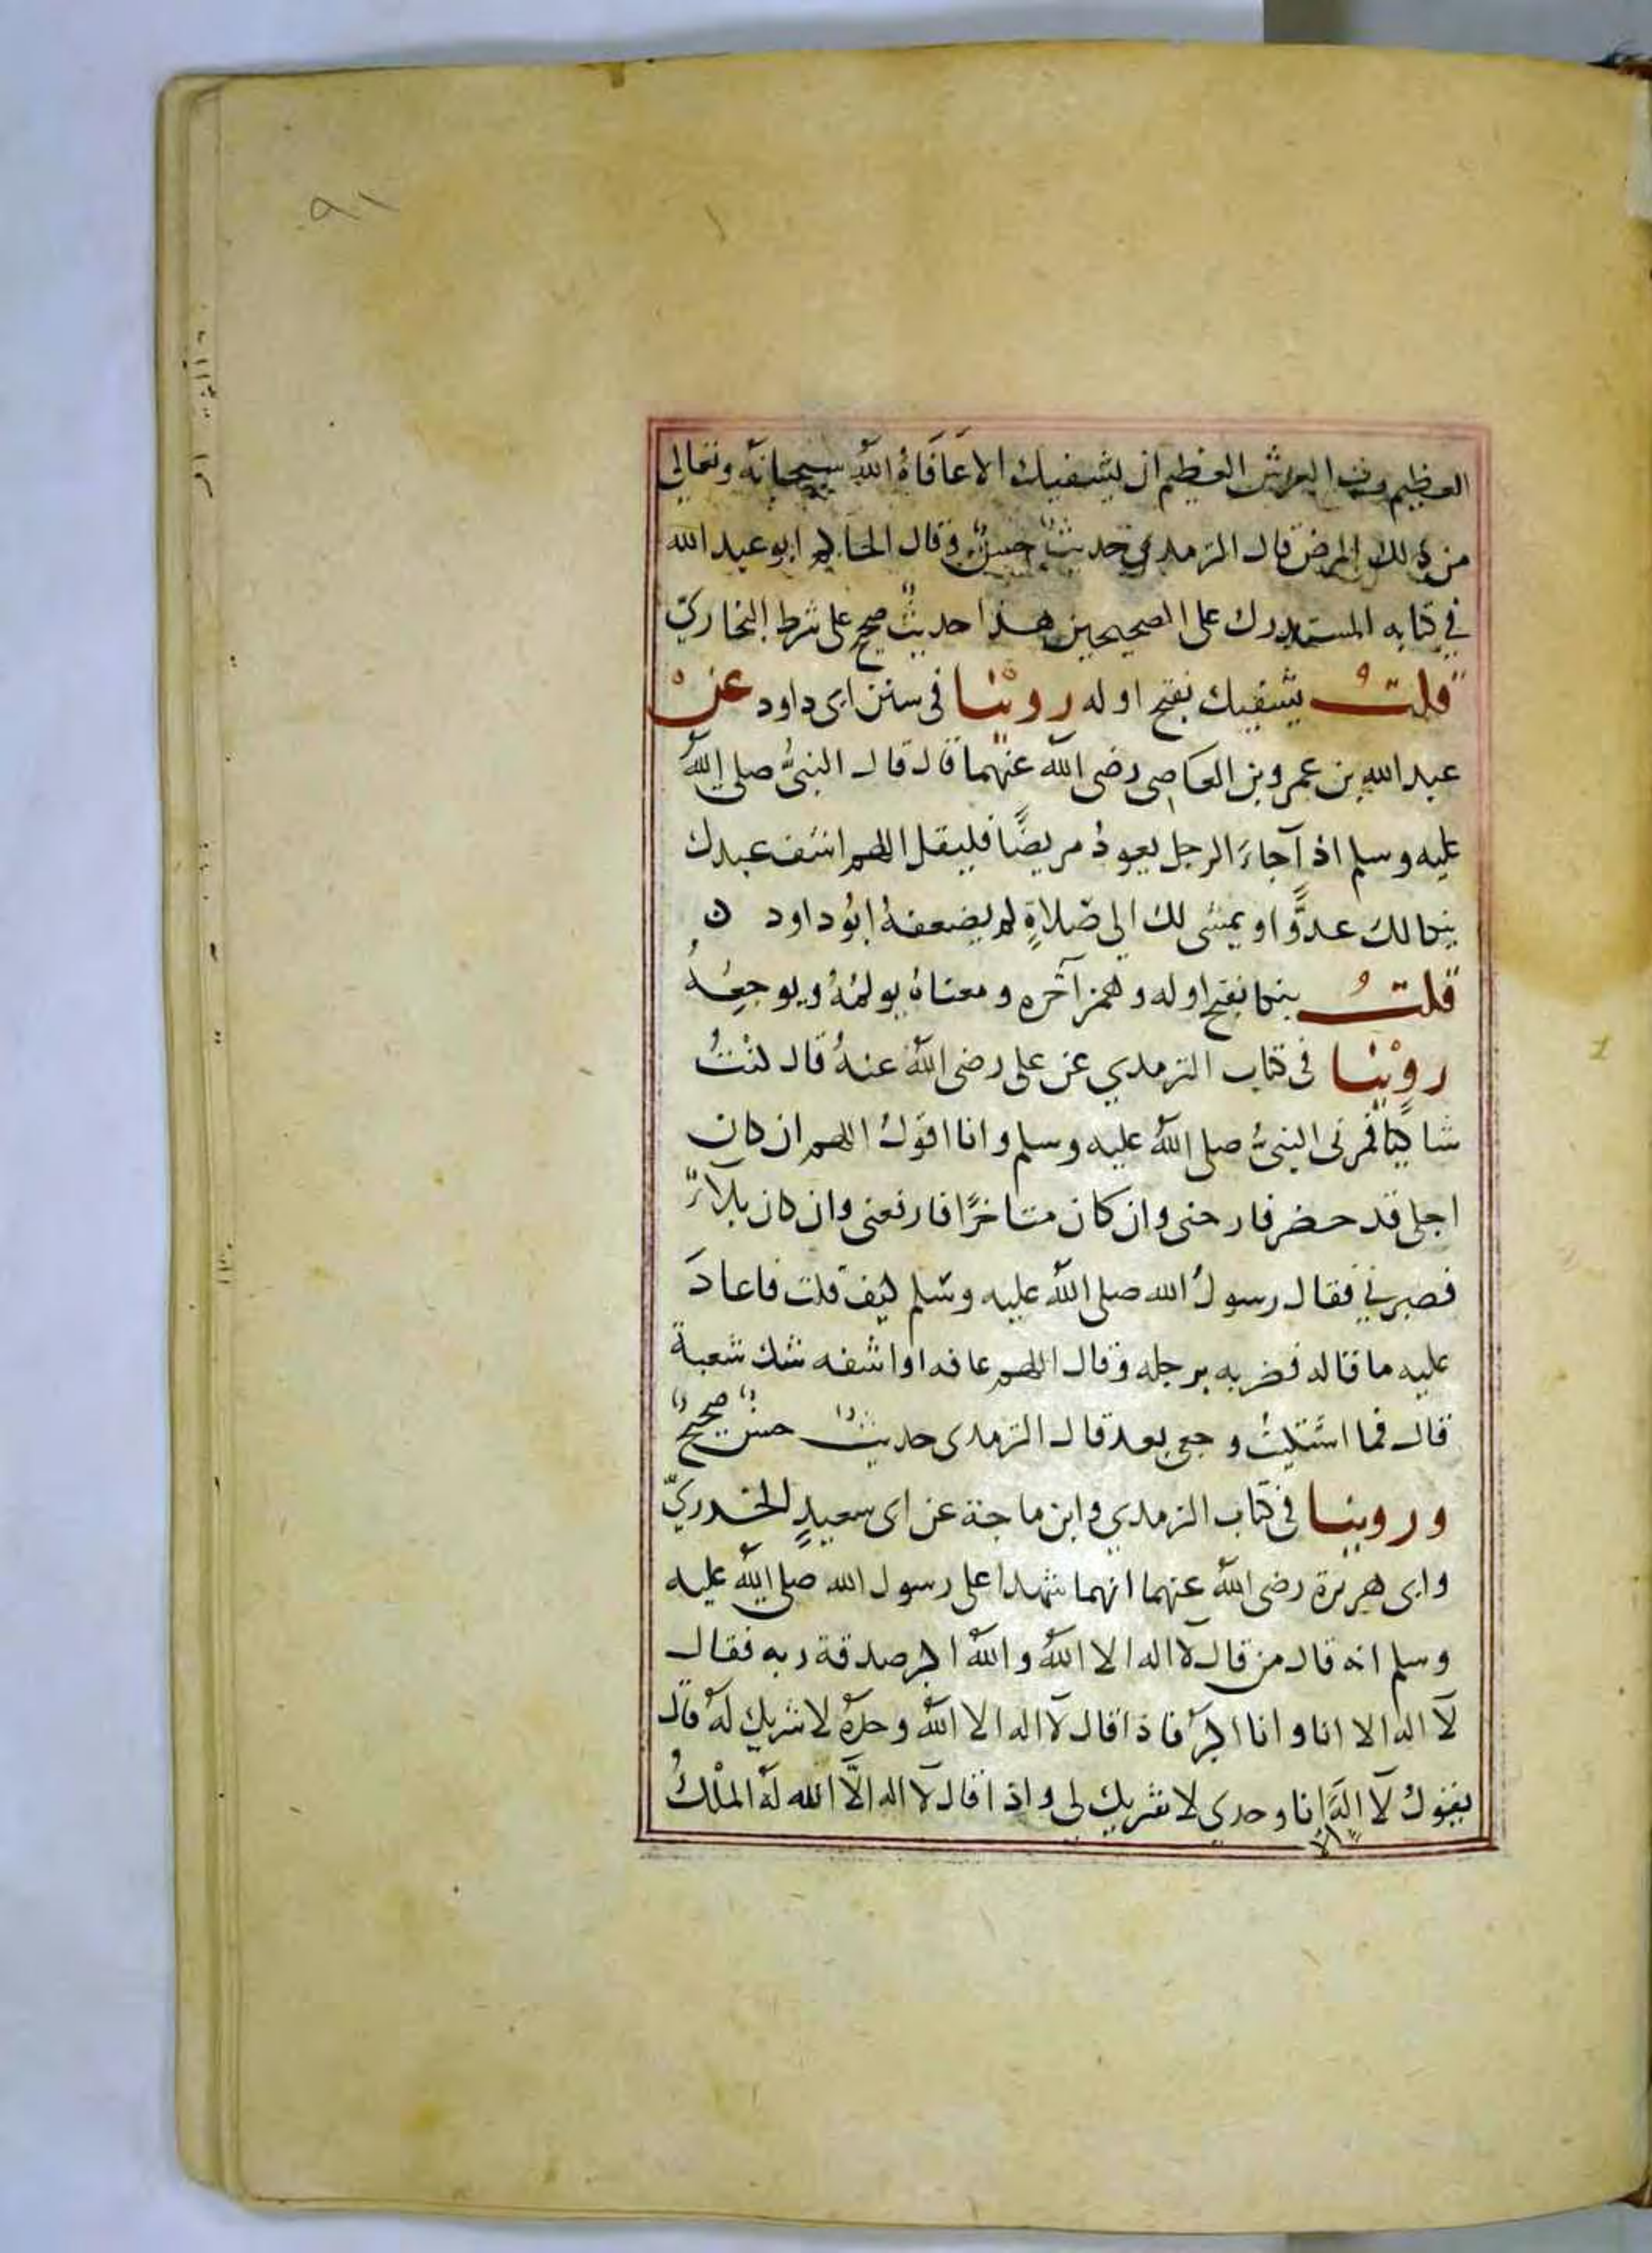 ٩١
العظيم رب العرش العظيم ان يشفيك الا عَافَاهُ اللهُ سبحانه وتعالى
من ذلك المرض قال الترمدي حديث حسن وقال الحاكم ابو عبد الله
في كتابه المستدرك على الصحيحين هذا حديث صحيح على شرط البخاري
قلتُ يشفيك بفتح اوله روينا في سنن ابى داود عن
عبد الله بن عمرو بن العاصى رضى الله عنهما قال قال النبيُّ صلى اللهُ
عليه وسلم اذا جاءَ الرجل يعودُ مريضًا فليقل اللهم اشف عبدك
ينكا لك عدوًّا او يمشى لك الى صلاةٍ لم يضعفهُ ابُو داود ن
قلتُ ينكا بفتح اوله وهمز آخره ومعناهُ يولمُهُ ويوجعُهُ
روينا فى كتاب الترمدي عن على رضى اللهُ عنهُ قال كنتُ
شاكيًا فمر بى النبىُّ صلى اللهُ عليه وسلم وانا اقولُ اللهم ان كان
اجلى قد حضر فارحنى وان كان متاخرًا فارفعنى وان كان بلاءً
فصبرني فقال رسولُ الله صلى اللهُ عليه وسلم كيف قلت فاعادَ
عليه ما قاله فضربه برجله وقال اللهم عافه او اشفه شك شعبة
قال فما اشتكيتُ وجعى بعد قال الترمدى حديث حسن صحيح
وروينا في كتاب الترمدي وابن ماجة عن ابى سعيدٍ الخدريّ
وابى هريرة رضى اللهُ عنهما انهما شهدا على رسول الله صلى الله عليه
وسلم انه قال من قال لا اله الا اللهُ واللهُ اكبر صدقة ربه فقال
لا اله الا انا وانا اكبرُ فاذا قال لا اله الا اللهُ وحدهُ لا شريك لهُ قال
يقولُ لا الهَ الا انا وحدي لا شريك لى واذا قال لا اله الَّا الله لهُ الملْكُ